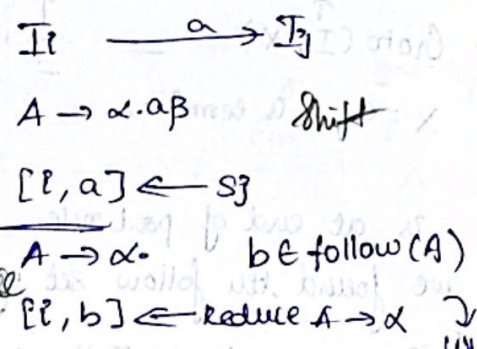 Ii —a→ Ij
A → α.aβ Shift
[i, a] ← Sj
A → α. b ∈ follow(A)
[i, b] ← reduce A → α